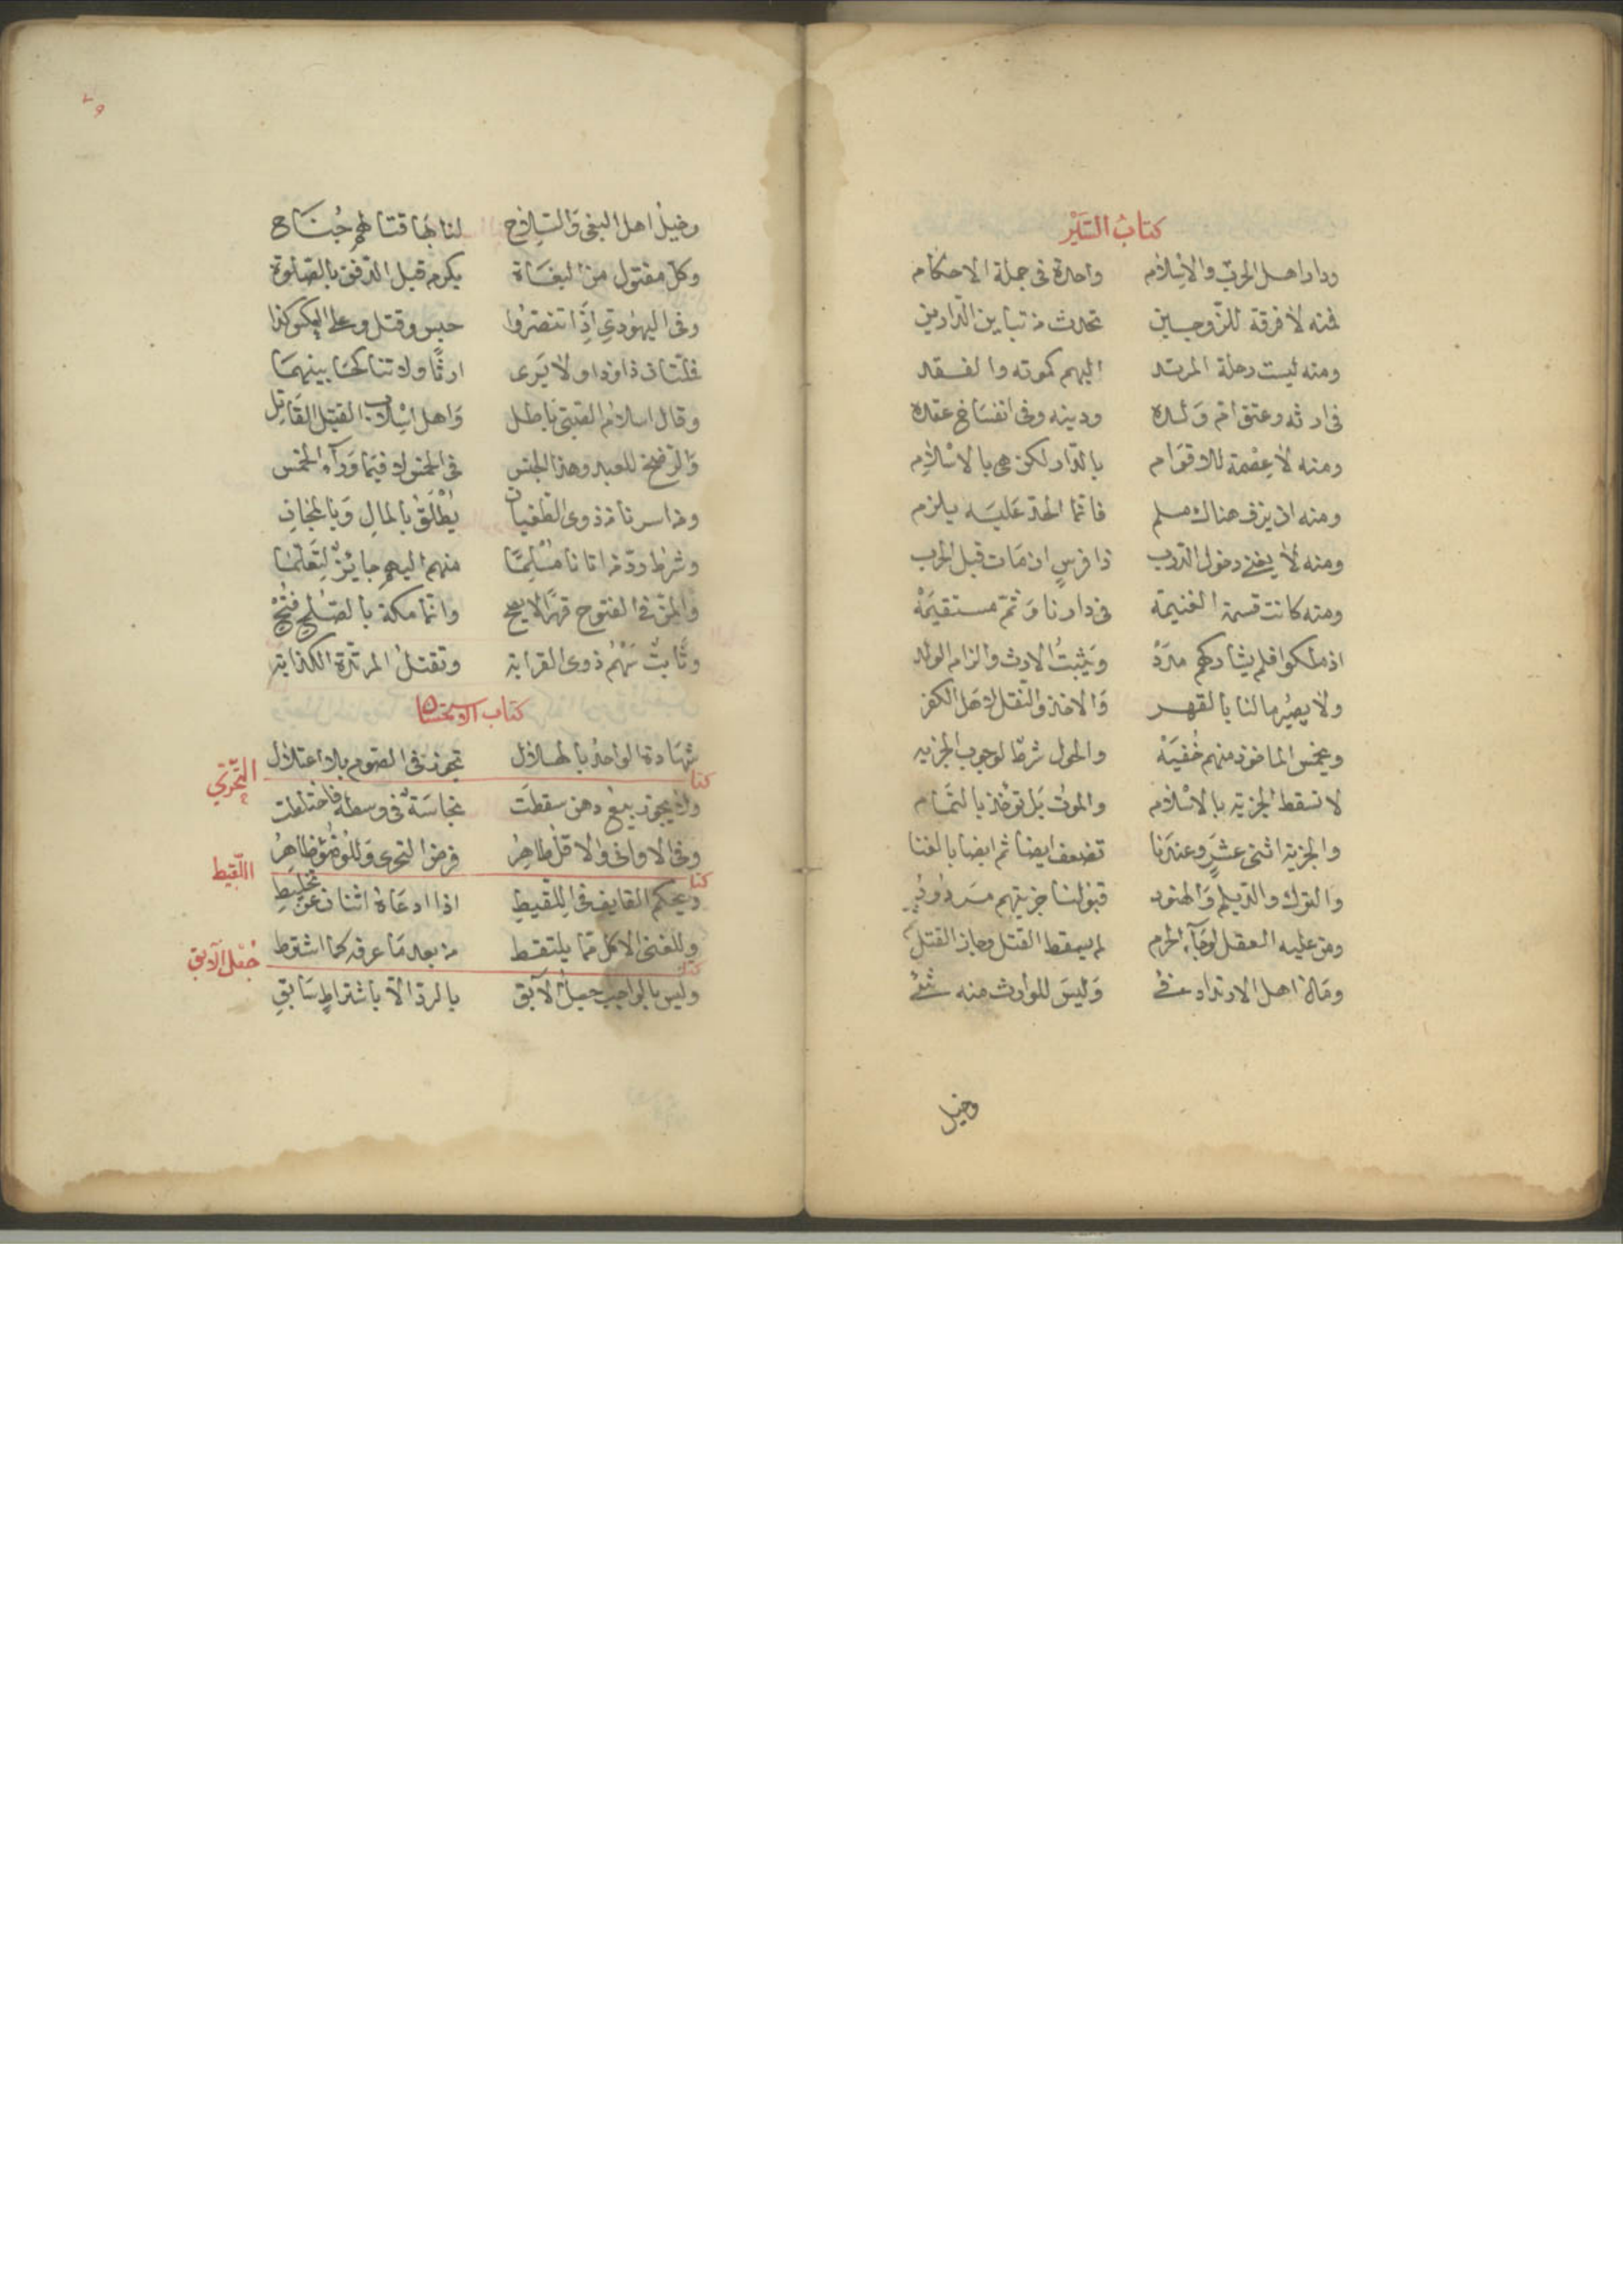 كتاب السير
ودار اهل الحرب والاسلام واحدة فى جملة الاحكام
فمنه لا فرقة للزوجين تحدث من تباين الدارين
ومنه ليست رحلة المرتد اليهم كموته والفقد
فى ارثه وعتق ام ولده ودينه وفى انفساخ عقده
ومنه لا عصمة للاقوام بالدار لكن هى بالاسلام
ومنه ان يزن هناك مسلم فانما الحد عليه يلزم
ومنه لا يغنى دخول الدرب ذا فرس ان مات قبل الحرب
ومنه كانت قسمة الغنيمة فى دارنا وثم مستقيمة
اذ ملكوا فلم يشاركهم مدد ويثبت الارث والزام الولد
ولا يصير مالنا بالقهر والاخذ والنقل لاهل الكفر
ويخمس الماخوذ منهم خفيه والحول شرط لوجوب الجزيه
لا تسقط الجزية بالاسلام والموت بل تؤخذ بالتمام
والجزية اثنى عشر وعندنا تضعف ايضا ثم ايضا بالغنا
والترك والديلم والهنود قبولنا جزيتهم مردود
ومن عليه العقل لو جاء الحرم لم يسقط القتل وجاز القتل
ومال اهل الارتداد فئ وليس للوارث منه شئ
وخيل
وخيل اهل البغى والسلاح لنا بها قتالهم جناح
وكل مقتول من البغاة يكرم قبل الدفن بالصلوة
وفى اليهودى اذا تنصروا حبس وقتل وعلى العكس كذا
ارثا ولا تناكحا بينهما
وقال اسلام الصبى باطل واهل اسلاب القتيل القاتل
والرضخ للعبد وهذا الجنس فى الخمس لا فيما وراء الخمس
ومن اسرنا من ذوى الطغيان يطلق بالمال وبالمجان
وشرط رد من اتانا مسلما منهم اليهم جائز لتعلما
والمن فى المفتوح قهرا لا يصح وانما مكة بالصلح فتح
وثابت سهم ذوى القرابة وتقتل المرتدة الكذابة
كتاب الاستحسان
شهادة الواحد بالهلال تجوز فى الصوم بلا اعتلال
كتاب التحرى
ولا يجوز بيع دهن سقطت نجاسة فى وسطه فاختلطت
وفى الاوانى والاقل طاهر فرض التحرى وللوضوء ظاهر
كتاب اللقيط
ويحكم القايف فى اللقيط اذا ادعاه اثنان عن تخليط
وللغنى الاكل مما يلتقط من بعد ما عرفه كما اشترط
كتاب جعل الآبق
وليس بالواجب جعل الآبق بالرد الا باشتراط سابق